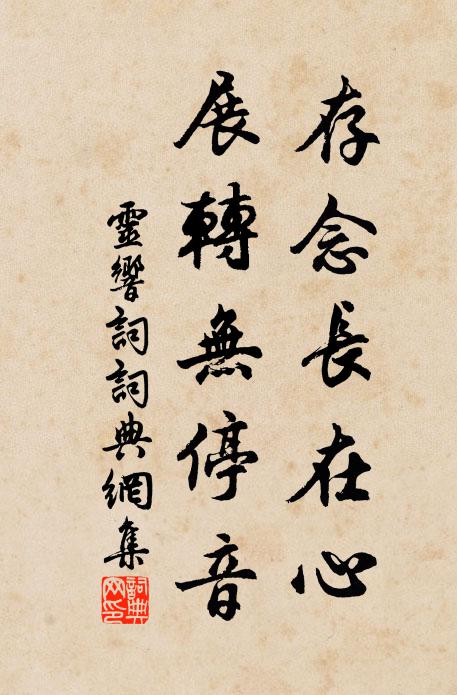 存念長在心
展轉無停音
靈響詞詞典網集
詞典
网印